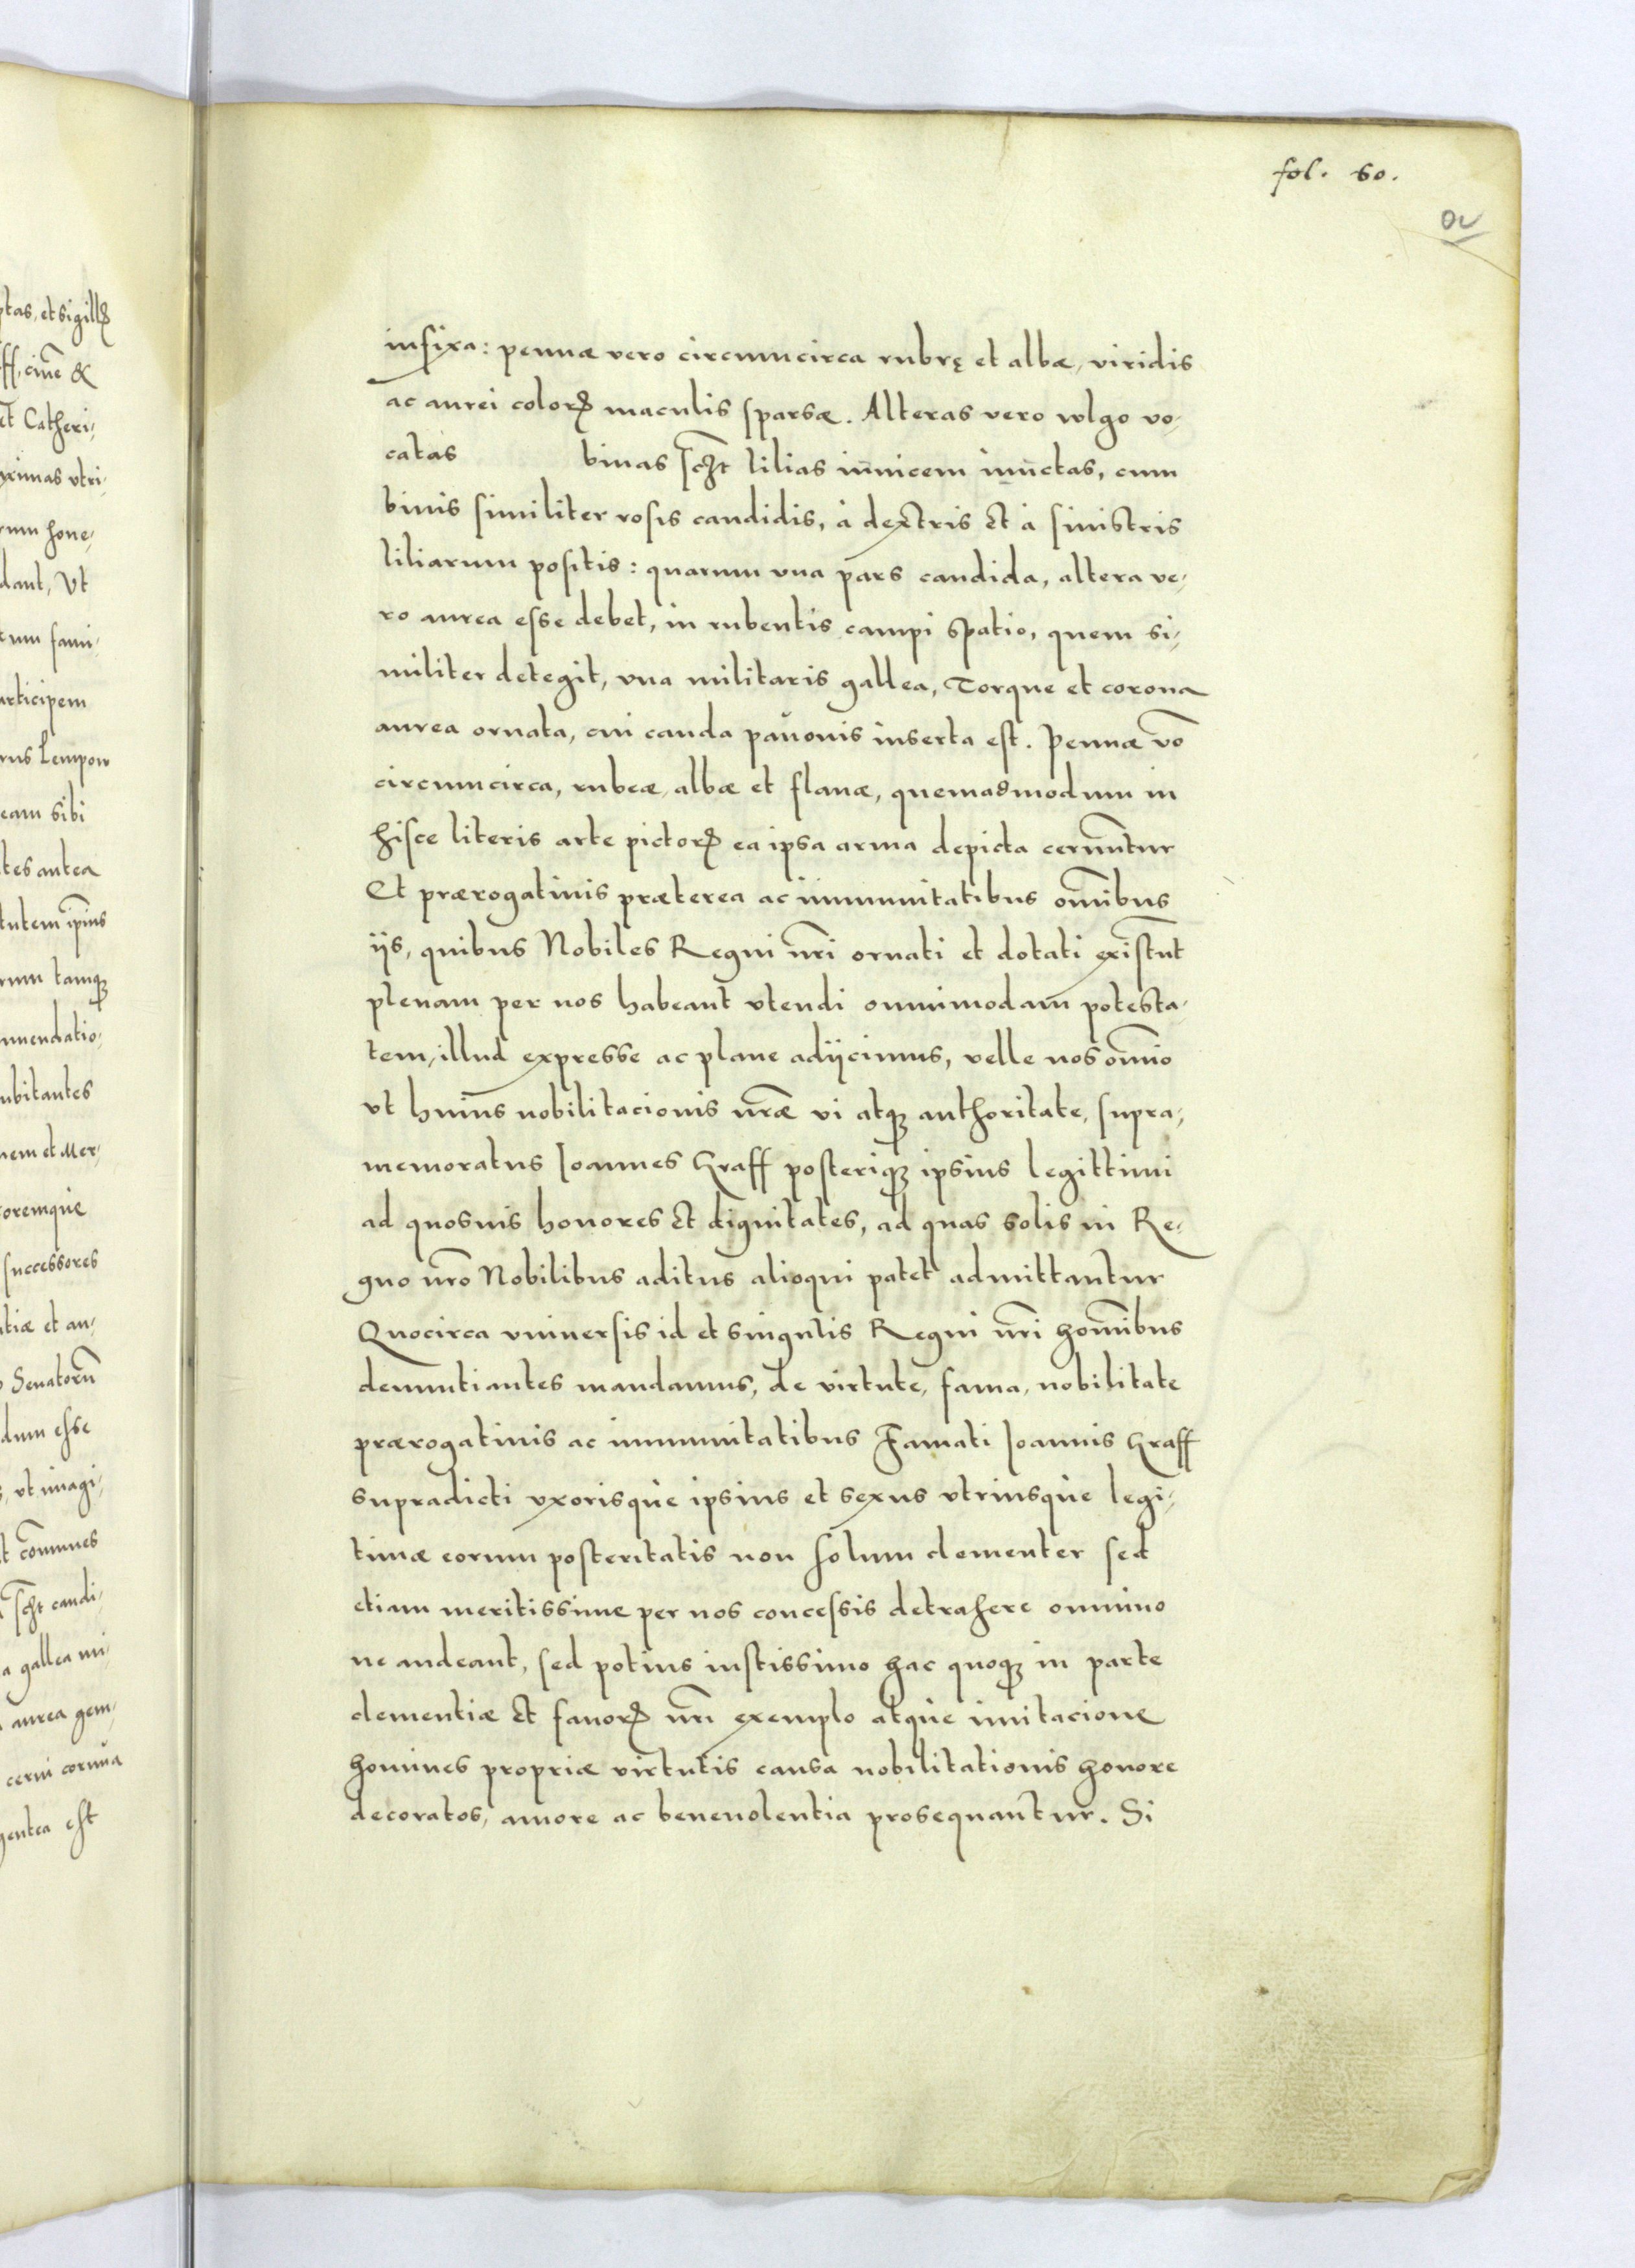 fol. 60.
infixa: pennæ vero circumcirca rubrę et albæ, viridis
ac aurei colorꝫ maculis sparsæ. Alteras vero wlgo vo-
catas binas scht lilias inuicem iunctas, cum
binis similiter rosis candidis, à dextris et à sinistris
liliarum positis: quarum vna pars candida, altera ve-
ro aurea esse debet, in rubentis campi spatio, quem si-
militer detegit, vna militaris gallea, Torque et corona
aurea ornata, cui cauda pauonis inserta est. Pennæ vō
circumcirca, rubeæ, albæ et flauæ, quemadmodum in
hisce literis arte pictorꝫ ea ipsa arma depicta cernuntur
Et prærogatiuis præterea ac immunitatibus om̄ibus
iis, quibus Nobiles Regni nr̄i ornati et dotati existūt
plenam per nos habeant vtendi omnimodam potesta-
tem, illud expresse ac plane adijcimus, velle nos om̄io
vt huius nobilitacionis nr̄æ vi atqꝫ authoritate, supra-
memoratus Joannes Graff posteriqꝫ ipsius legittimi
ad quosuis honores et dignitates, ad quas solis in Re-
gno nr̄o Nobilibus aditus alioqui patet admittantur
Quocirca vniuersis id et singulis Regni nr̄i hom̄ibus
denuntiantes mandamus, de virtute, fama, nobilitate
prærogatiuis ac immunitatibus Famati Joannis Graff
supradicti vxorisque ipsius et sexus vtriusque legi-
timæ eorum posteritatis non solum clementer sed
etiam meritissime per nos concessis detrahere omnino
ne audeant, sed potius iustissimo hac quoqꝫ in parte
clementiæ et fauorꝫ nr̄i exemplo atque imitacione
homines propriæ virtutis causa nobilitationis honore
decoratos, amore ac beneuolentia prosequantur. Si